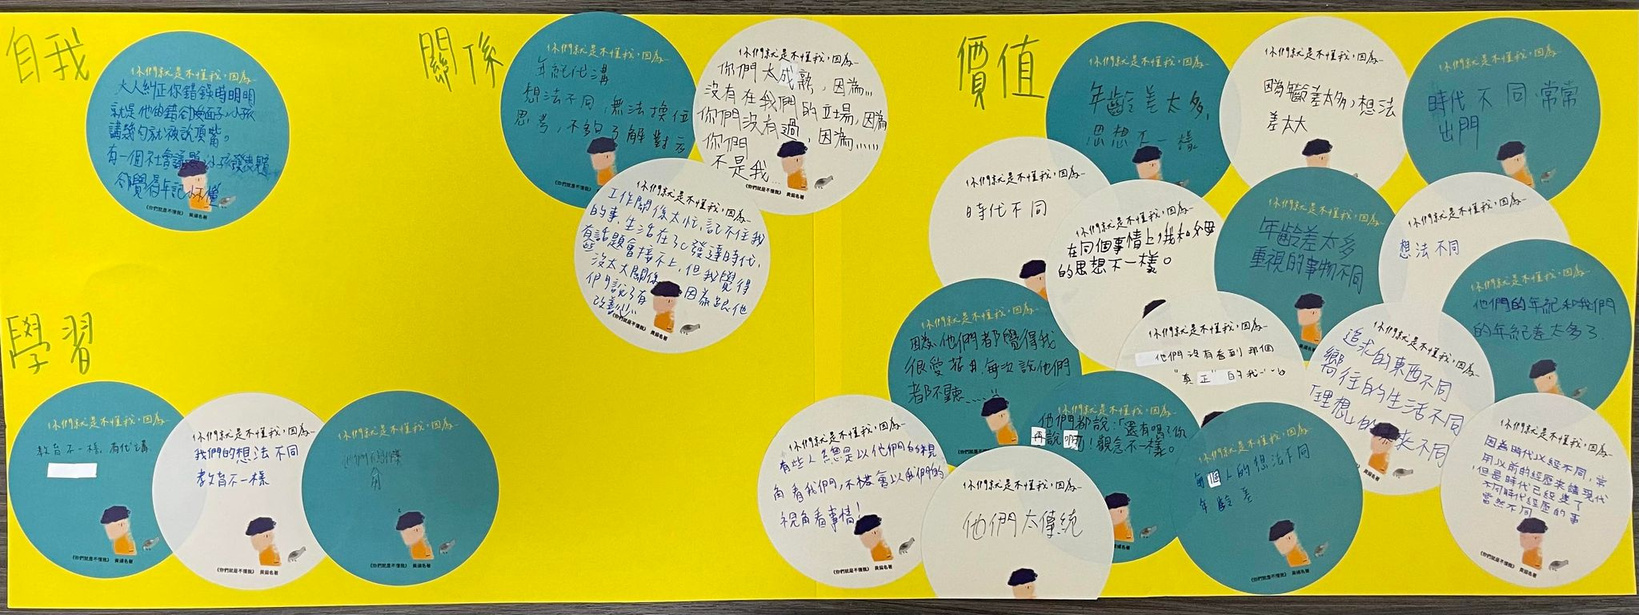 自我
你們就是不懂我，因為~
大人糾正你錯錯時明明
就是他的錯卻換面子，小孩
講幾句就被說頂嘴。
有一個社會議題，小孩發表
年記小不懂
《你們就是不懂我》 黃越名著
關係
你們就是不懂我，因為~
年記代溝
想法不同，無法換位
思考，不夠了解對方
《你們就是不懂我》 黃越名著
你們就是不懂我，因為~
你們太成熟，因為...
沒有在我們的立場，因為
你們沒有過，因為......
你們
不是我
黃越名著
你們就是不懂我，因為~
工作關係太忙，記不住我
的事，生活在3C發達時代，
有些話題會接不上，但我覺得
沒太大關係 因為跟他
們說了有
改善!!!
黃越名著
價值
你們就是不懂我，因為~
年齡差太多，
思想不一樣
你們就是不懂我，因為~
因為年齡差太多，想法
差太大
你們就是不懂我，因為~
時代不同常常
出門
你們就是不懂我，因為~
時代不同
你們就是不懂我，因為~
在同個事情上，我和父母
的思想不一樣。
你們就是不懂我，因為~
年齡差太多
重視的事物不同
你們就是不懂我，因為~
想法不同
你們就是不懂我，因為~
他們的年紀和我們
的年紀差太多了
你們就是不懂我，因為~
因為他們都覺得我
很愛花錢，每次說他們
都不聽......
你們就是不懂我，因為~
他們沒有看到那個
"真正"的我......
你們就是不懂我，因為~
追求的東西不同
嚮往的生活不同
「理想」的未來不同
學習
你們就是不懂我，因為~
教育不一樣，有代溝
《你們就是不懂我》 黃越名著
你們就是不懂我，因為~
我們的想法不同
教育不一樣
《你們就是不懂我》 黃越名著
你們就是不懂我，因為~
《你們就是不懂我》 黃越名著
你們就是不懂我，因為~
有些人總是以他們的視
角看我們，不會以我們的
視角看事情！
《你們就是不懂我》 黃越名著
你們就是不懂我，因為~
他們太傳統
你們就是不懂我，因為~
他們都說：「還有嗎？你
再說啊」觀念不一樣。
黃越名著
你們就是不懂我，因為~
每個人的想法不同
年齡差
《你們就是不懂我》 黃越名著
你們就是不懂我，因為~
因為時代以經不同，常
用以前的經歷來講現代
但是時代已經變了
不同時代經歷的事
當然不同
《你們就是不懂我》 黃越名著